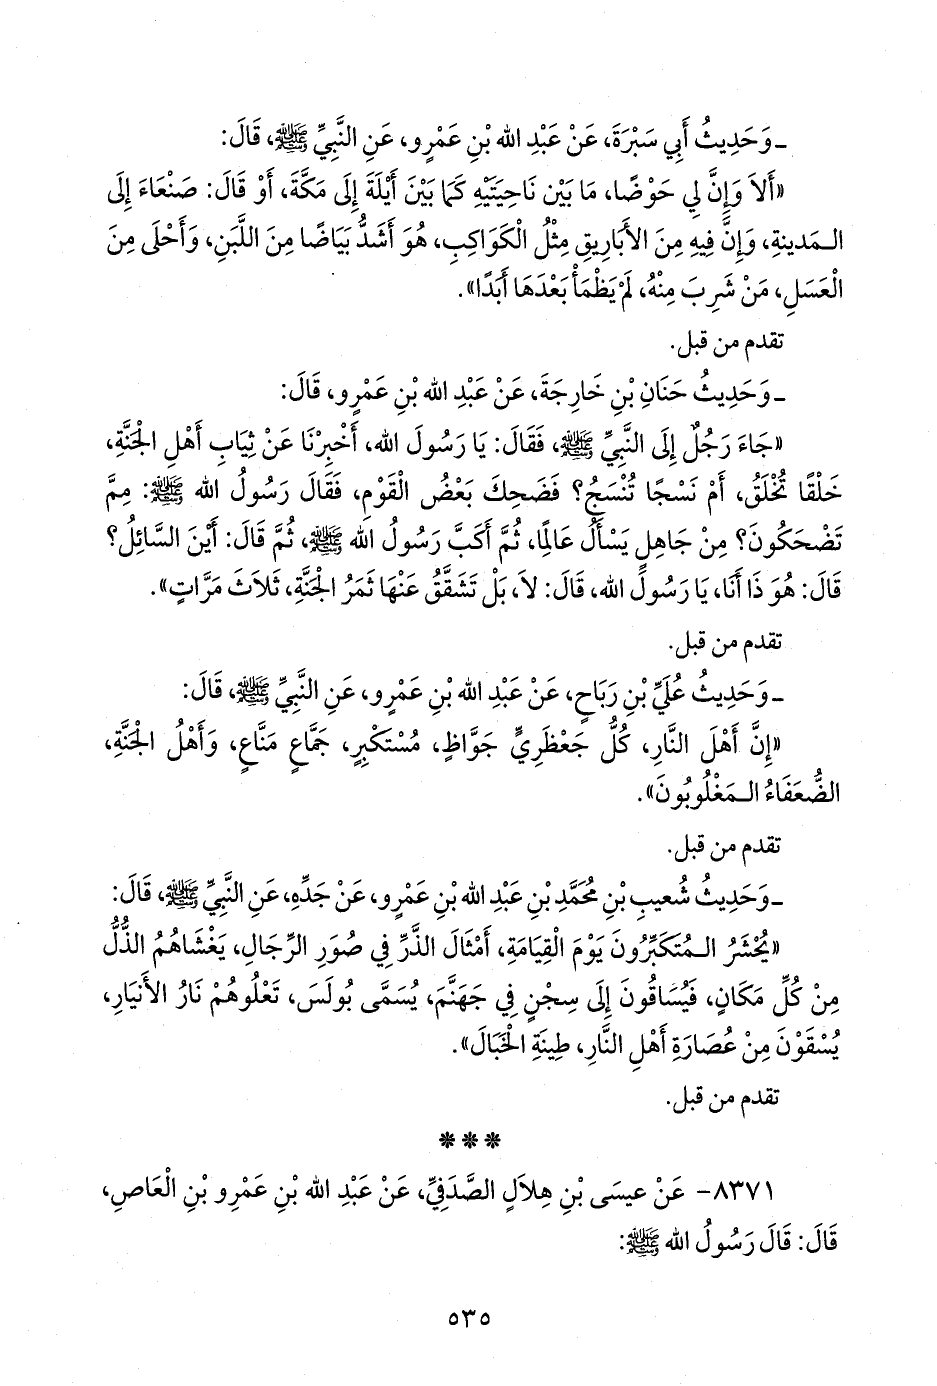 ـ وَحَدِيثُ أَبِي سَبْرَةَ، عَنْ عَبْدِ الله بْنِ عَمْرٍو، عَنِ النَّبِيِّ ﷺ، قَالَ:
«أَلاَ وَإِنَّ لِي حَوْضًا، مَا بَيْن نَاحِيَتَيْهِ كَمَا بَيْنَ أَيْلَةَ إِلَى مَكَّةَ، أَوْ قَالَ: صَنْعَاءَ إِلَى
الـمَدينةِ، وَإِنَّ فِيهِ مِنَ الأَبَارِيقِ مِثْلُ الْكَوَاكِبِ، هُوَ أَشَدُّ بَيَاضًا مِنَ اللَّبَنِ، وَأَحْلَى مِنَ
الْعَسَلِ، مَنْ شَرِبَ مِنْهُ، لَمْ يَظْمَأْ بَعْدَهَا أَبَدًا».
تقدم من قبل.
ـ وَحَدِيثُ حَنَانِ بْنِ خَارِجَةَ، عَنْ عَبْدِ الله بْنِ عَمْرٍو، قَالَ:
«جَاءَ رَجُلٌ إِلَى النَّبِيِّ ﷺ، فَقَالَ: يَا رَسُولَ الله، أَخْبِرْنَا عَنْ ثِيَابِ أَهْلِ الجَنَّةِ،
خَلْقًا تُخْلَقُ، أَمْ نَسْجًا تُنْسَجُ؟ فَضَحِكَ بَعْضُ الْقَوْمِ، فَقَالَ رَسُولُ الله ﷺ: مِمَّ
تَضْحَكُونَ؟ مِنْ جَاهِلٍ يَسْأَلُ عَالِمًا، ثُمَّ أَكَبَّ رَسُولُ الله ﷺ، ثُمَّ قَالَ: أَيْنَ السَّائِلُ؟
قَالَ: هُوَ ذَا أَنَا، يَا رَسُولَ الله، قَالَ: لاَ، بَلْ تَشَقَّقُ عَنْهَا ثَمَرُ الجَنَّةِ، ثَلاَثَ مَرَّاتٍ».
تقدم من قبل.
ـ وَحَدِيثُ عُلَيِّ بْنِ رَبَاحٍ، عَنْ عَبْدِ الله بْنِ عَمْرٍو، عَنِ النَّبِيِّ ﷺ، قَالَ:
«إِنَّ أَهْلَ النَّارِ، كُلُّ جَعْظَرِيٍّ جَوَّاظٍ، مُسْتَكْبِرٍ، جَمَّاعٍ مَنَّاعٍ، وَأَهْلُ الجَنَّةِ،
الضُّعَفَاءُ الـمَغْلُوبُونَ».
تقدم من قبل.
ـ وَحَدِيثُ شُعيبِ بْنِ مُحَمَّدِ بْنِ عَبْدِ الله بْنِ عَمْرٍو، عَنْ جَدِّهِ، عَنِ النَّبِيِّ ﷺ، قَالَ:
«يُحْشَرُ الـمُتَكَبِّرُونَ يَوْمَ الْقِيَامَةِ، أَمْثَالَ الذَّرِّ فِي صُوَرِ الرِّجَالِ، يَغْشَاهُمُ الذُّلُّ
مِنْ كُلِّ مَكَانٍ، فَيُسَاقُونَ إِلَى سِجْنٍ فِي جَهَنَّمَ، يُسَمَّى بُولَسَ، تَعْلُوهُمْ نَارُ الأَنْيَارِ،
يُسْقَوْنَ مِنْ عُصَارَةِ أَهْلِ النَّارِ، طِينَةِ الْخَبَالَ».
تقدم من قبل.
***
٨٣٧١- عَنْ عيسَى بْنِ هِلاَلٍ الصَّدَفيِّ، عَنْ عَبْدِ الله بْنِ عَمْرِو بْنِ الْعَاصِ،
قَالَ: قَالَ رَسُولُ الله ﷺ:
٥٣٥